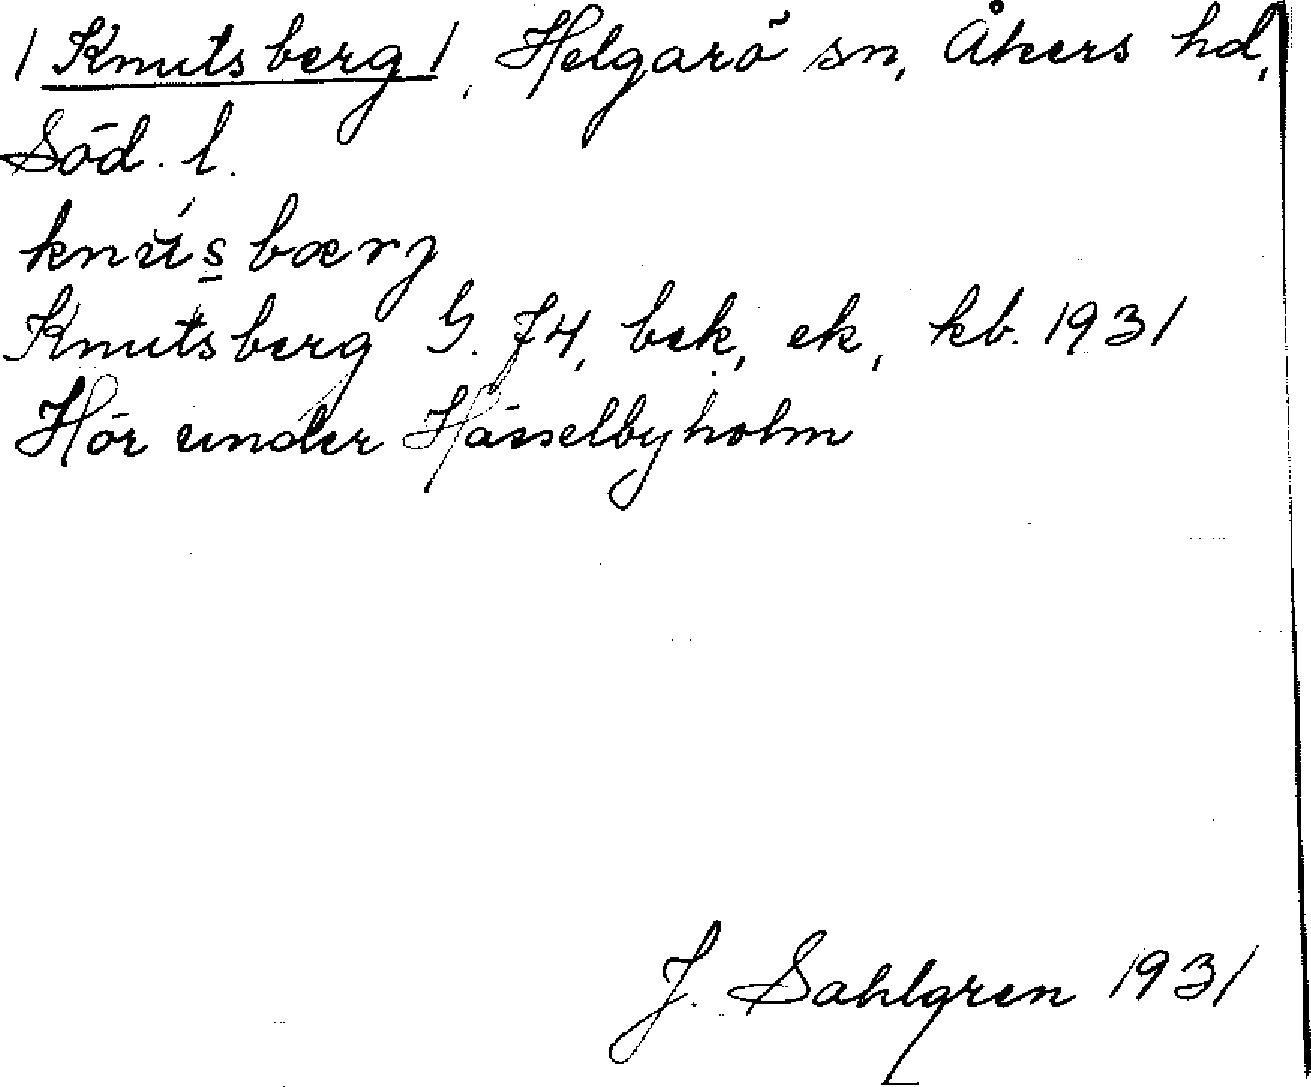 /Knutsberg/, Helgarö sn, Åkers hd,
Söd. l.
knú̆s̲bærj
Knutsberg G. J4, bek, ek, kb. 1931
Hör under Hässelbyholm
J. Sahlgren 1931